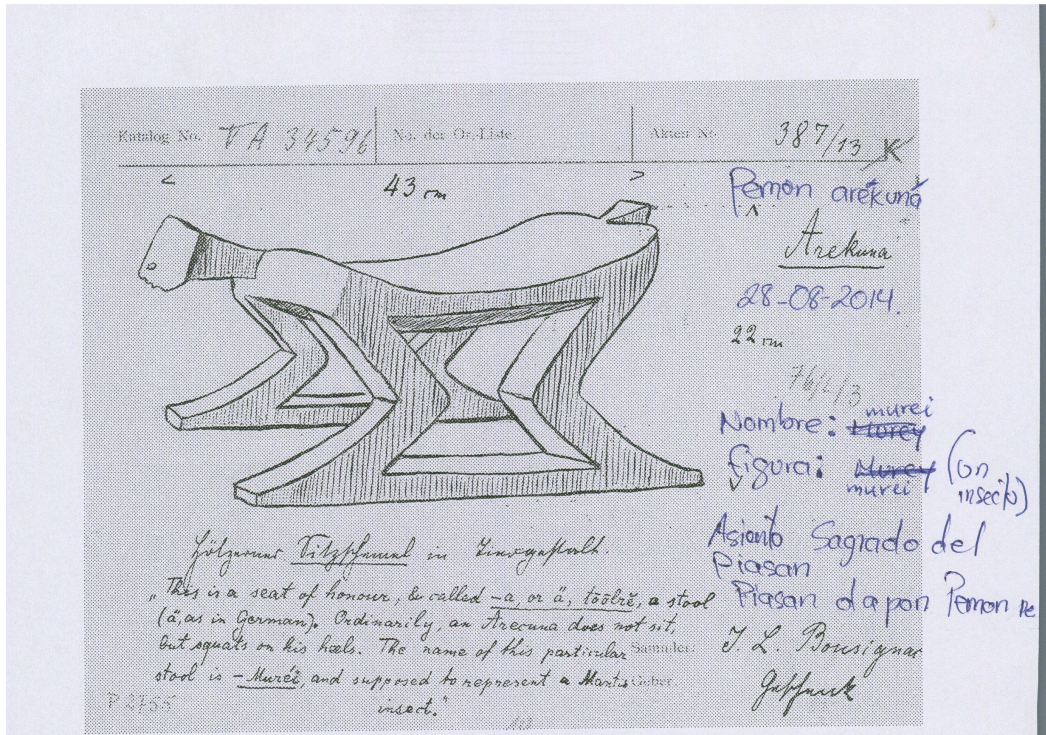 Katalog No. VA 34596 No. der Or.-Liste. Akten No. 387/13 K
< 43 cm >
Pemon arekuna
Arekuna
28-08-2014.
22 cm
Nombre: murei Morey
figura: Murey murei (un insecto)
Hölzerner Sitzschemel in Tiergestalt.
Asiento Sagrado del
Piasan
Piasan dapon Pemon pe
„This is a seat of honour, be called –a, or ä, tōōlrě, a stool
(ä, as in German). Ordinarily, an Arecuna does not sit,
but squats on his heels. The name of this particular
stool is – Muréi, and supposed to represent a Mantis
insect."
Sammler: J. L. Bousignac
Geber. Geschenk
P 2755